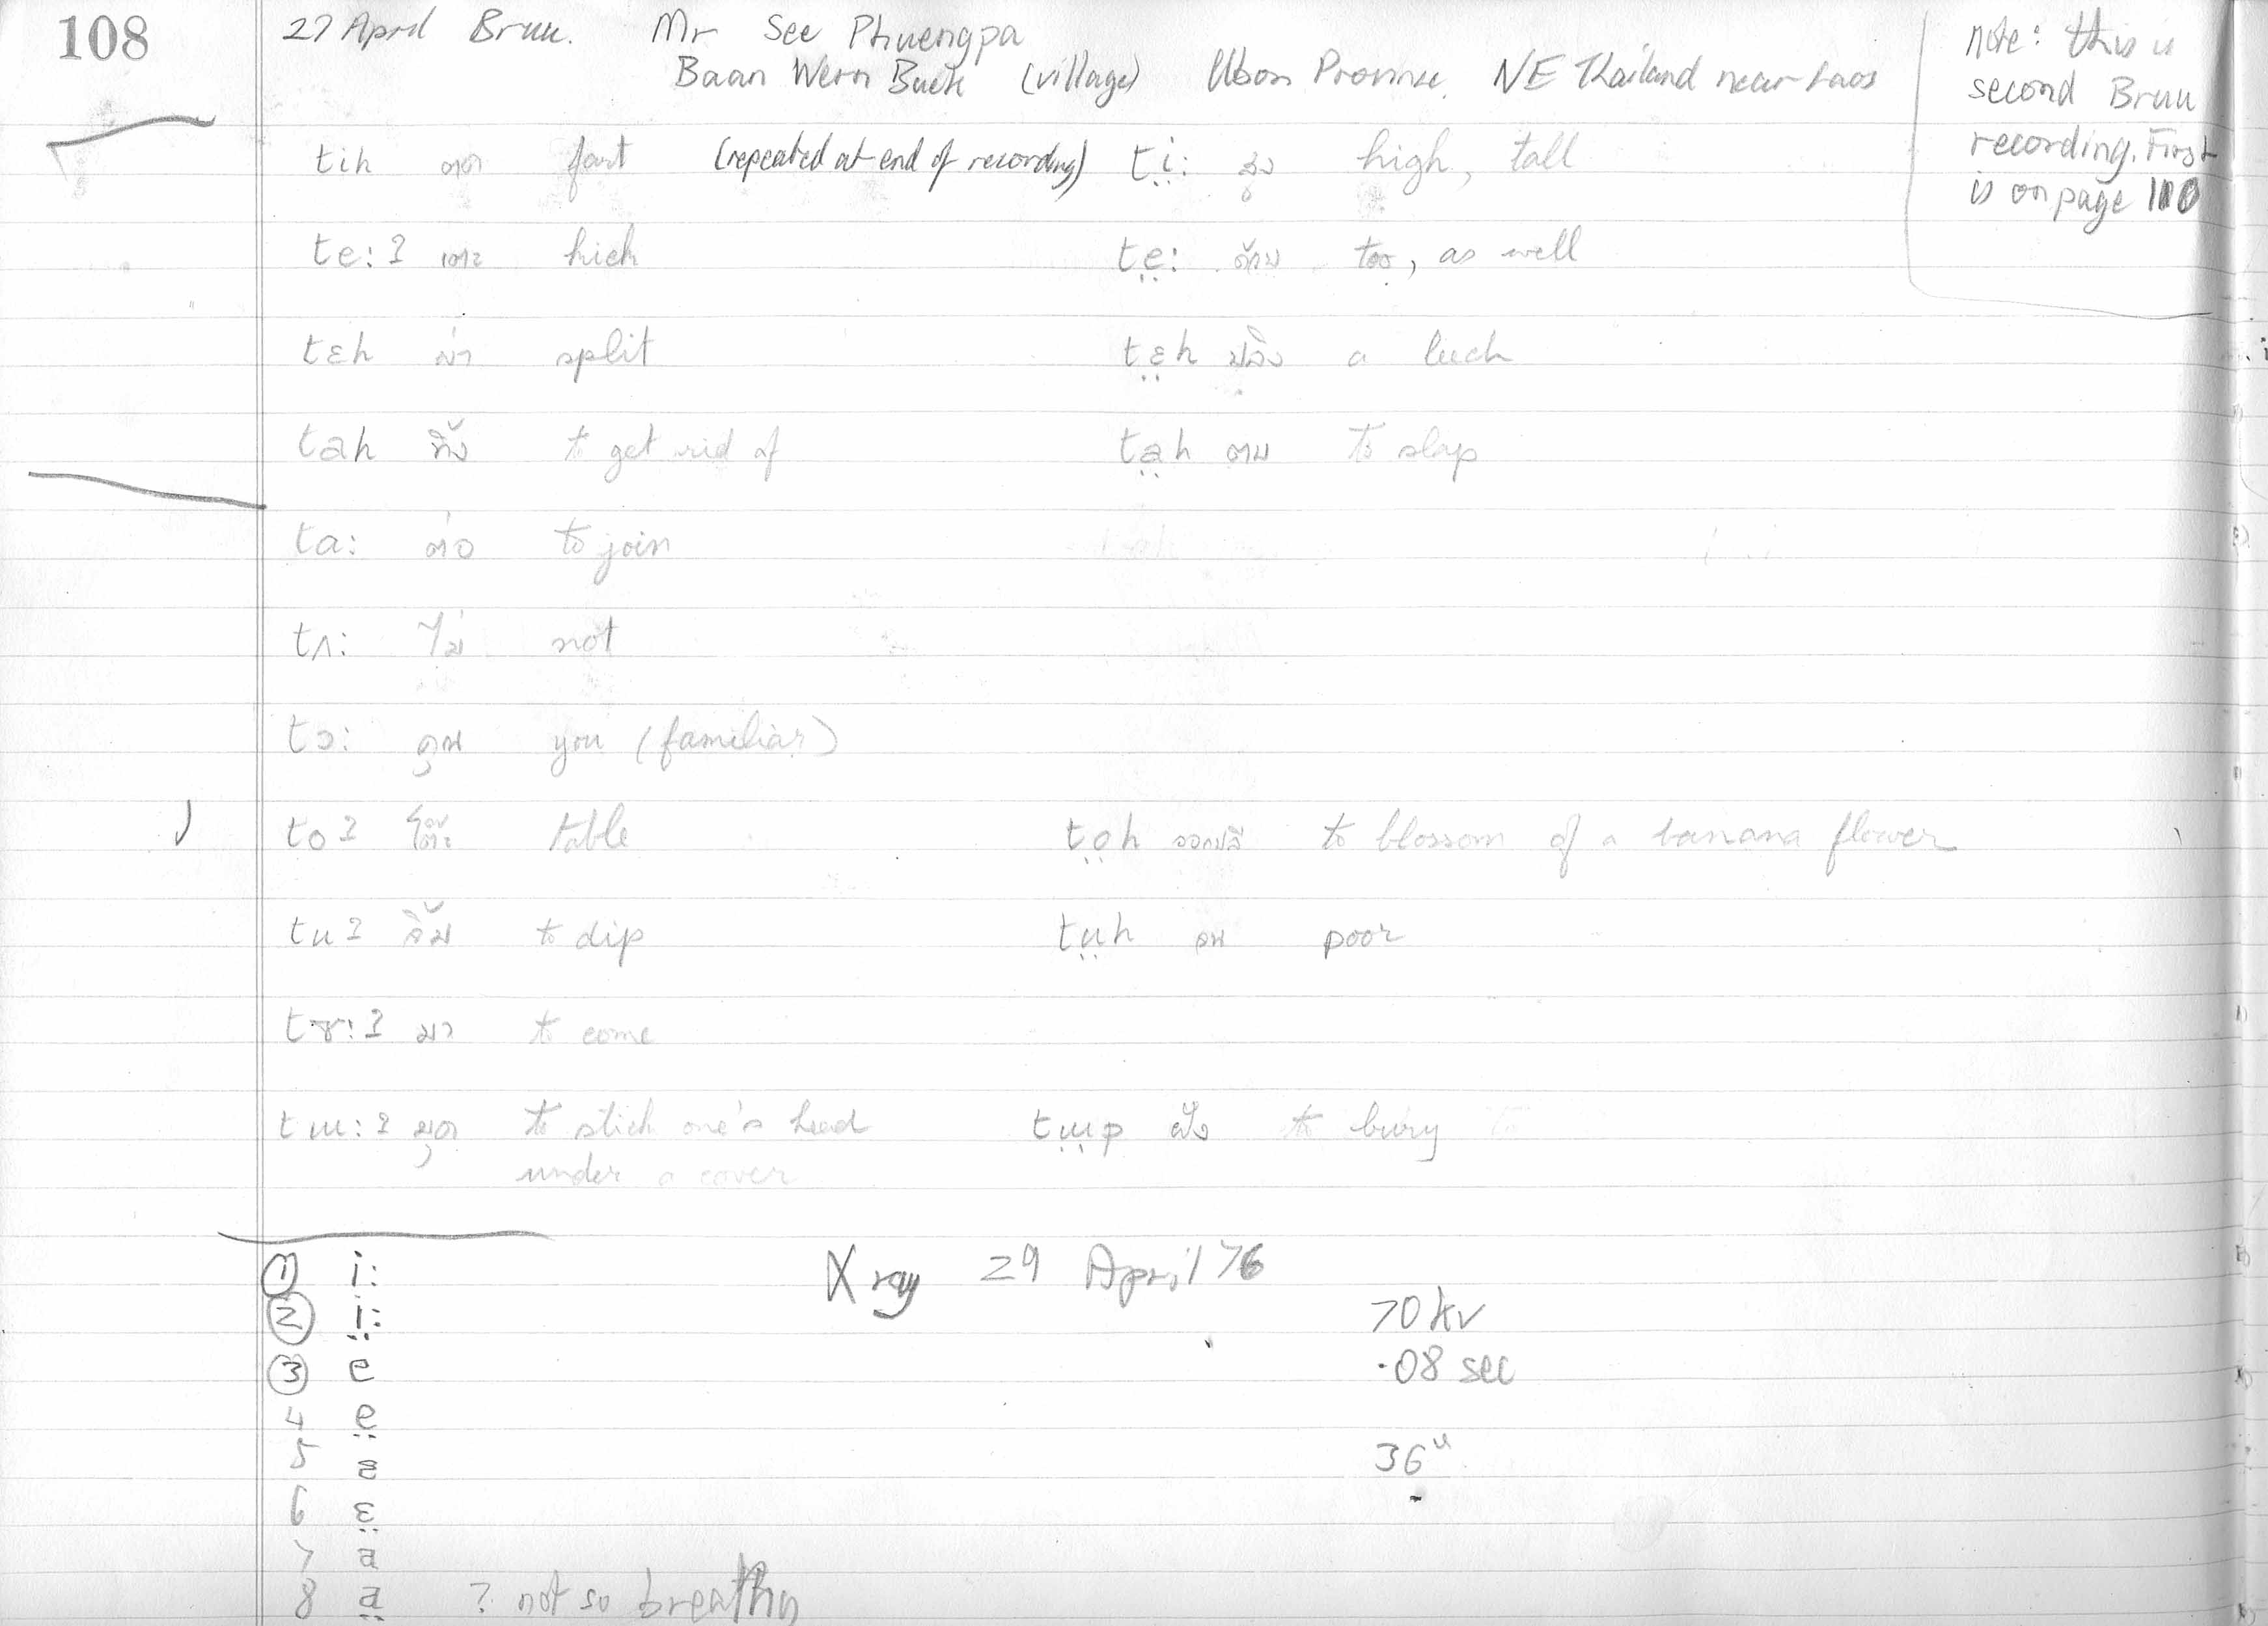 108
27 April Bruu. Mr See Phuengpa
Baan Wern Buek (village) Ubon Province. NE Thailand near Laos
note: this is
second Bruu
recording. First
is on page 110
tih ตด fart (repeated at end of recording) ti̤: สูง high, tall
te:ʔ เตะ kick te̤: ด้วย too, as well
tɛh ผ่า split tɛ̤h ปลิง a leech
tah ทิ้ง to get rid of ta̤h ตบ to slap
tɑ: ต่อ to join
tʌ: ไม่ not
tɔ: คุณ you (familiar)
toʔ โต๊ะ table to̤h ออกปลี to blossom of a banana flower
tuʔ จิ้ม to dip tṳh จน poor
tɤ:ʔ มา to come
tɯ:ʔ มุด to stick one's head tɯ̤p ฝัง to bury
under a cover
① i: X ray 29 April 76
② i̤: 70 kv
③ e .08 sec
4 e̤
5 ɛ 36"
6 ɛ̤
7 a
8 a̤ ? not so breathy